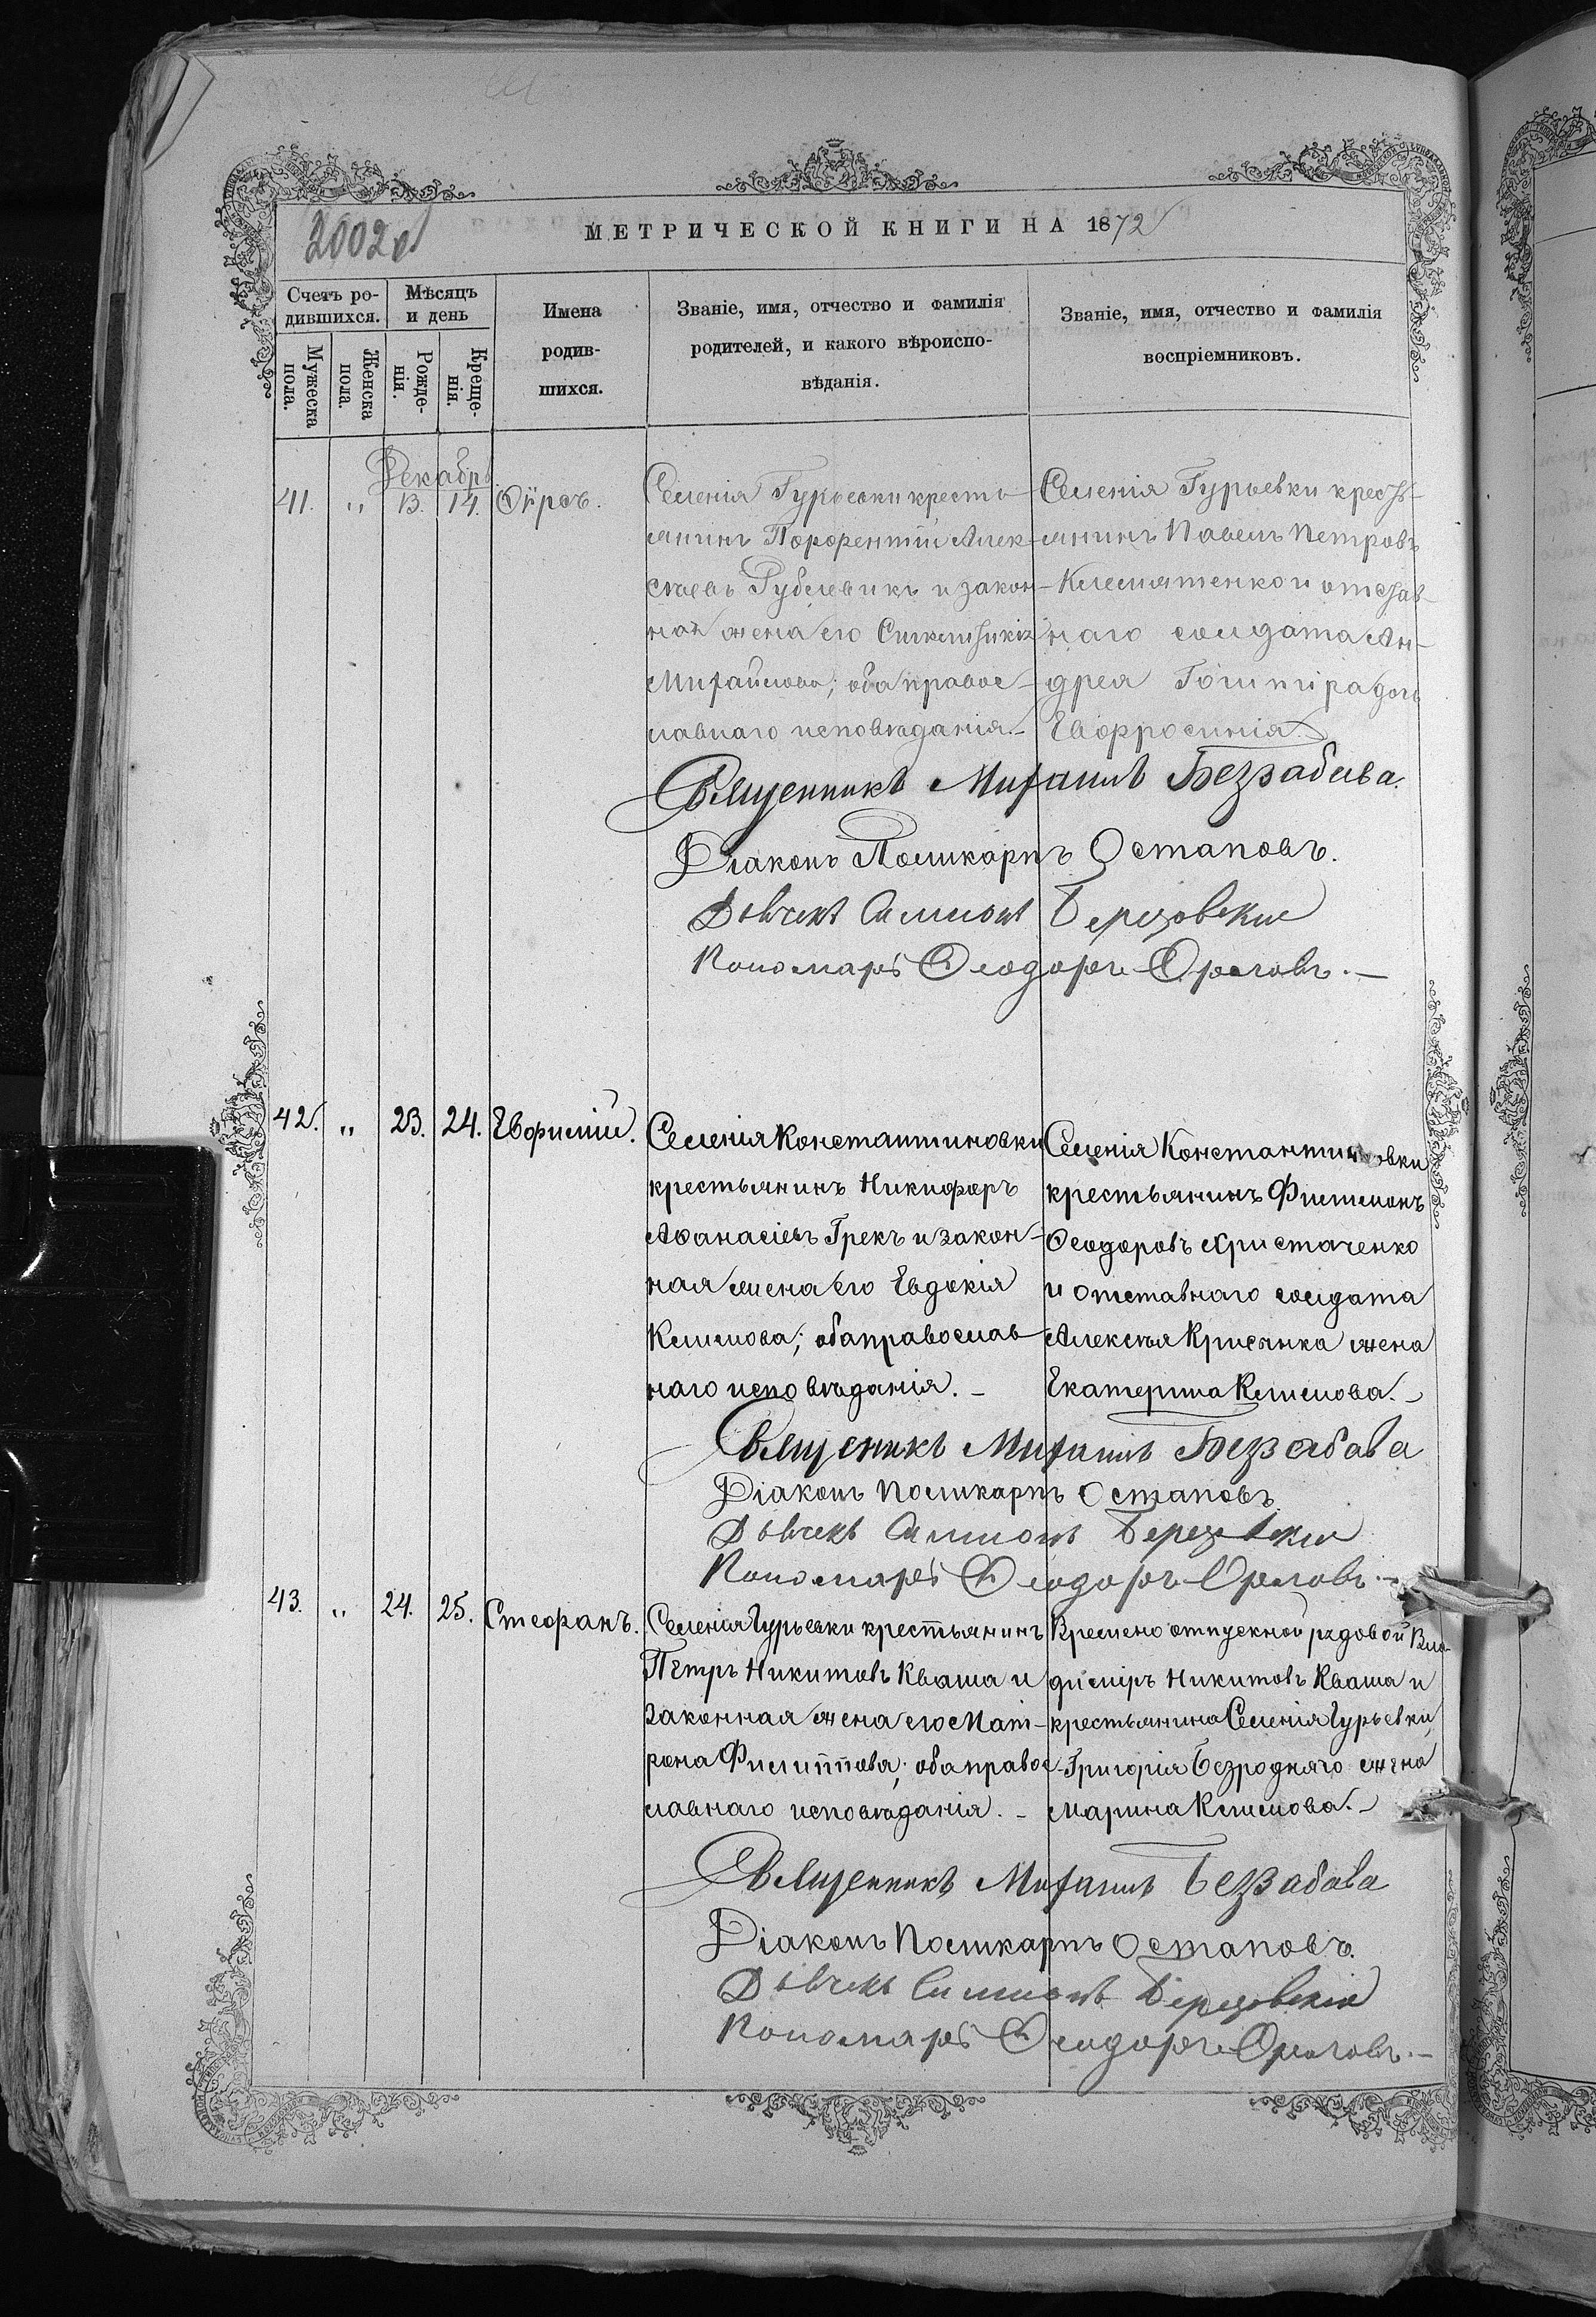 2002 об
МЕТРИЧЕСКОЙ КНИГИ НА 1872
Счетъ ро-
дившихся.
Мѣсяцъ
и день
Мужеска
пола.
Женска
пола.
Рожде-
нія.
Креще-
нія.
Имена
родив-
шихся.
Званіе, имя, отчество и фамилія
родителей, и какого вѣроиспо-
вѣданія.
Званіе, имя, отчество и фамилія
воспріемниковъ.
Декабрь
41. „ 13. 14. Ѳирсъ.
Селенія Гурьевки кресть-
янинъ Порфентій Алек-
сѣевъ Рублевикъ и закон-
ная жена его Синклитикія
Михайлова; оба правос-
лавнаго исповѣданія.-
Селенія Гурьевки кресть-
янинъ Павелъ Петровъ
Клемятенко и отстав-
наго солдата Ан-
дрея дочь
Евфросинія.
Священникъ Михаилъ Беззабава.
Діаконъ Поликарпъ Остаповъ.
Дьячекъ Симеонъ Березовскій
Пономарь Ѳеодоръ Орловъ.—
42. „ 23. 24. Евфимій.
Селенія Константиновки
крестьянинъ Никифоръ
Аѳанасіевъ Грекъ и закон-
ная жена его Евдокія
Климова; оба православ
наго исповѣданія.-
Селенія Константиновки
крестьянинъ Филимонъ
Ѳеодоровъ Христаченко
и отставнаго солдата
Алексѣя жена
Екатерина Климова.-
Священникъ Михаилъ Беззабава
Діаконъ Поликарпъ Остаповъ
Дьячекъ Симеонъ Березовскій
Пономарь Ѳеодоръ Орловъ.—
43. „ 24. 25. Стефанъ.
Селенія Гурьевки крестьянинъ
Петръ Никитовъ Кваша и
законная жена его Мат-
рона Филиппова; оба правос-
лавнаго исповѣданія.-
Времено отпускной рядовой Вла-
диміръ Никитовъ Кваша и
крестьянина Селенія Гурьевки,
Григорія Безродняго жена
Марина Климова.-
Священникъ Михаилъ Беззабава
Діаконъ Поликарпъ Остаповъ.
Дьячекъ Симеонъ Березовскій
Пономарь Ѳеодоръ Орловъ.—